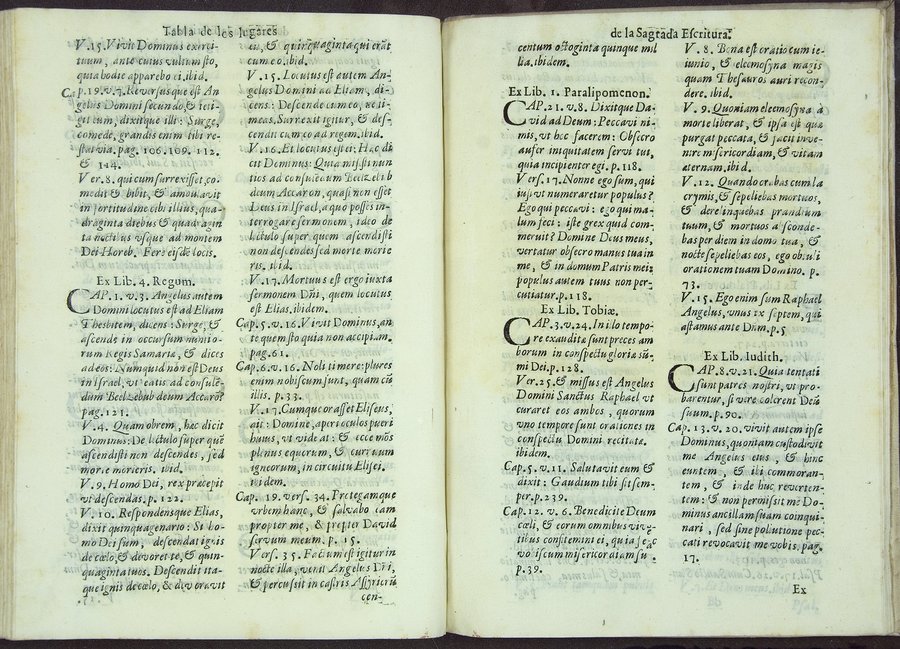 Tabla de los lugares
V. 15. Vivit Dominus exerci-
tuum, ante cuius vultum sto,
quia hodie apparebo ei. ibid.
Cap. 19. v. 7. Reversusque est An
gelus Domini secundo, & teti-
git eum, dixitque illi: Surge,
comede, grandis enim tibi re-
stat via. pag. 106. 109. 112.
& 144.
Ver. 8. qui cum surrexisset, co-
medit & bibit, & ambulavit
in fortitudine cibi illius, qua-
draginta diebus & quadragin
ta noctibus usque ad montem
Dei Horeb.
Ex Lib. 4. Regum.
CAP. 1. v. 3. Angelus autem
Domini locutus est ad Eliam
Thesbitem, dicens: Surge, &
ascende in occursum nuntio-
rum Regis Samariæ, & dices
ad eos: Nunquid non est Deus
in Israel, ut eatis ad consulē-
dum Beelzebub deum Accarō?
pag. 121.
V. 4. Quam obrem, hæc dicit
Dominus: De lectulo super quē
ascendisti non descendes, sed
morte morieris. ibid.
V. 9. Homo Dei, rex præcepit
ut descendas. p. 122.
V. 10. Respondensque Elias,
dixit quinquagenario: Si ho-
mo Dei sum, descendat ignis
de cœlo, & devoret te, & quin-
quaginta tuos. Descendit ita-
que ignis de cœlo, & devoravit
eū, & quinquaginta qui erāt
cum eo. ibid.
V. 15. Locutus est autem An-
gelus Domini ad Eliam, di-
cens: Descende cum eo, ne ti-
meas. Surrexit igitur, & des-
cendit cum eo ad regem. ibid.
V. 16. Et locutus est ei: Hæc di
cit Dominus: Quia misisti nun
tios ad consulendum Beelzebub
deum Accaron, quasi non esset
Deus in Israel, a quo posses in-
terrogare sermonem, ideo de
lectulo super quem ascendisti
non descendes, sed morte morie
ris. ibid.
V. 17. Mortuus est ergo iuxta
sermonem Dñi, quem locutus
est Elias. ibidem.
Cap. 5. v. 16. Vivit Dominus, an
te quem sto quia non accipiam.
pag. 61.
Cap. 6. v. 16. Noli timere: plures
enim nobiscum sunt, quam cū
illis. p. 33.
V. 17. Cumque orasset Eliseus,
ait: Domine, aperi oculos pueri
huius, ut videat: & ecce mōs
plenus equorum, & curruum
igneorum, in circuitu Elisei.
ibidem.
Cap. 19. vers. 34. Protegamque
urbem hanc, & salvabo eam
propter me, & propter David
servum meum. p. 15.
Vers. 35. Factum est igitur in
nocte illa, venit Angelus Dñi,
& percussit in castris Assyriorū
cen-
de la Sagrada Escritura.
centum octoginta quinque mil
lia. ibidem.
Ex Lib. 1. Paralipomenon.
CAP. 21. v. 8. Dixitque Da-
vid ad Deum: Peccavi ni-
mis, ut hoc facerem: Obsecro
aufer iniquitatem servi tui,
quia insipienter egi. p. 118.
Vers. 17. Nonne ego sum, qui
iussi ut numeraretur populus?
Ego qui peccavi: ego qui ma-
lum feci: iste grex quid com-
meruit? Domine Deus meus,
vertatur obsecro manus tua in
me, & in domum Patris mei:
populus autem tuus non per-
cutiatur. p. 118.
Ex Lib. Tobiæ.
CAP. 3. v. 24. In illo tempo-
re exauditæ sunt preces am
borum in conspectu gloriæ sū-
mi Dei. p. 128.
Ver. 25. & missus est Angelus
Domini Sanctus Raphael ut
curaret eos ambos, quorum
uno tempore sunt orationes in
conspectu Domini recitatæ.
ibidem.
Cap. 5. v. 11. Salutavit eum &
dixit: Gaudium tibi sit sem-
per. p. 239.
Cap. 12. v. 6. Benedicite Deum
cœli, & coram omnibus viven-
tibus confitemini ei, quia fecit
vobiscum misericordiam suā
p. 39.
V. 8. Bona est oratio cum ie-
iunio, & eleemosyna magis
quam Thesauros auri recon-
dere. ibid.
V. 9. Quoniam eleemosyna à
morte liberat, & ipsa est quæ
purgat peccata, & facit inve-
nire misericordiam, & vitam
æternam. ibid.
V. 12. Quando orabas cum la
crymis, & sepeliebas mortuos,
& derelinquebas prandium
tuum, & mortuos absconde-
bas per diem in domo tua, &
nocte sepeliebas eos, ego obtuli
orationem tuam Domino. p.
73.
V. 15. Ego enim sum Raphael
Angelus, unus ex septem, qui
astamus ante Dñm. p. 5
Ex Lib. Iudith.
CAP. 8. v. 21. Quia tentati
sunt patres nostri, ut pro-
barentur, si vere colerent Deū
suum. p. 90.
Cap. 13. v. 20. vivit autem ipse
Dominus, quoniam custodivit
me Angelus eius, & hinc
euntem, & ibi commoran-
tem, & inde huc reverten-
tem: & non permisit me Do-
minus ancillam suam coinqui-
nari, sed sine pollutione pec-
cati revocavit me vobis. pag.
17.
Ex